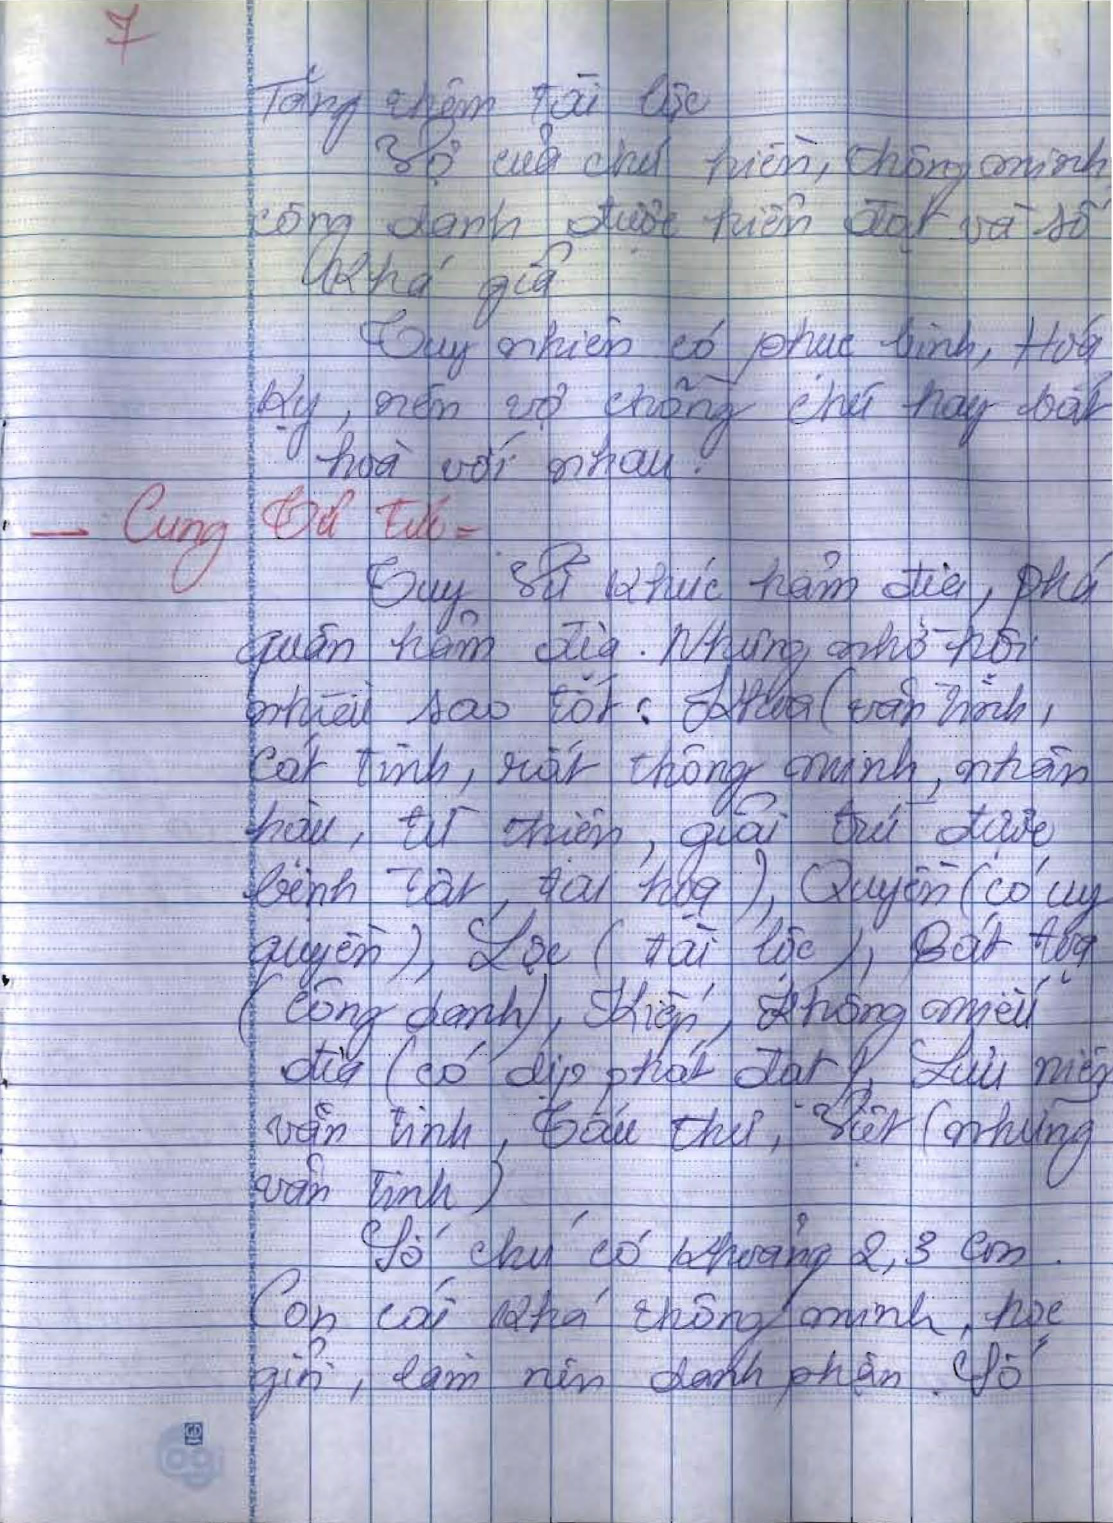 7
Tăng thêm tài lộc
Vợ của chú hiền, thông minh
công danh được hiển đạt và số
khá giả
Tuy nhiên có phục binh, Hoá
Kỵ, nên vợ chồng chú hay bất
hoà với nhau.
— Cung Tử Tức =
Tuy Vũ khúc hãm địa, phá
quân hãm địa. Nhưng nhờ hội
nhiều sao tốt: Khoa (văn tinh,
cát tinh, rất thông minh, nhân
hậu, từ thiện, giải trừ được
bệnh tật, tai hoạ), Quyền (có uy
quyền), Lộc (tài lộc), Bát toạ
(công danh), Kiếp, Không miếu
địa (có dịp phát đạt), Lưu niên
văn tinh, Tấu thư, Việt (những
văn tinh)
Số chú có khoảng 2, 3 con.
Con cái khá thông minh, học
giỏi, làm nên danh phận. Số